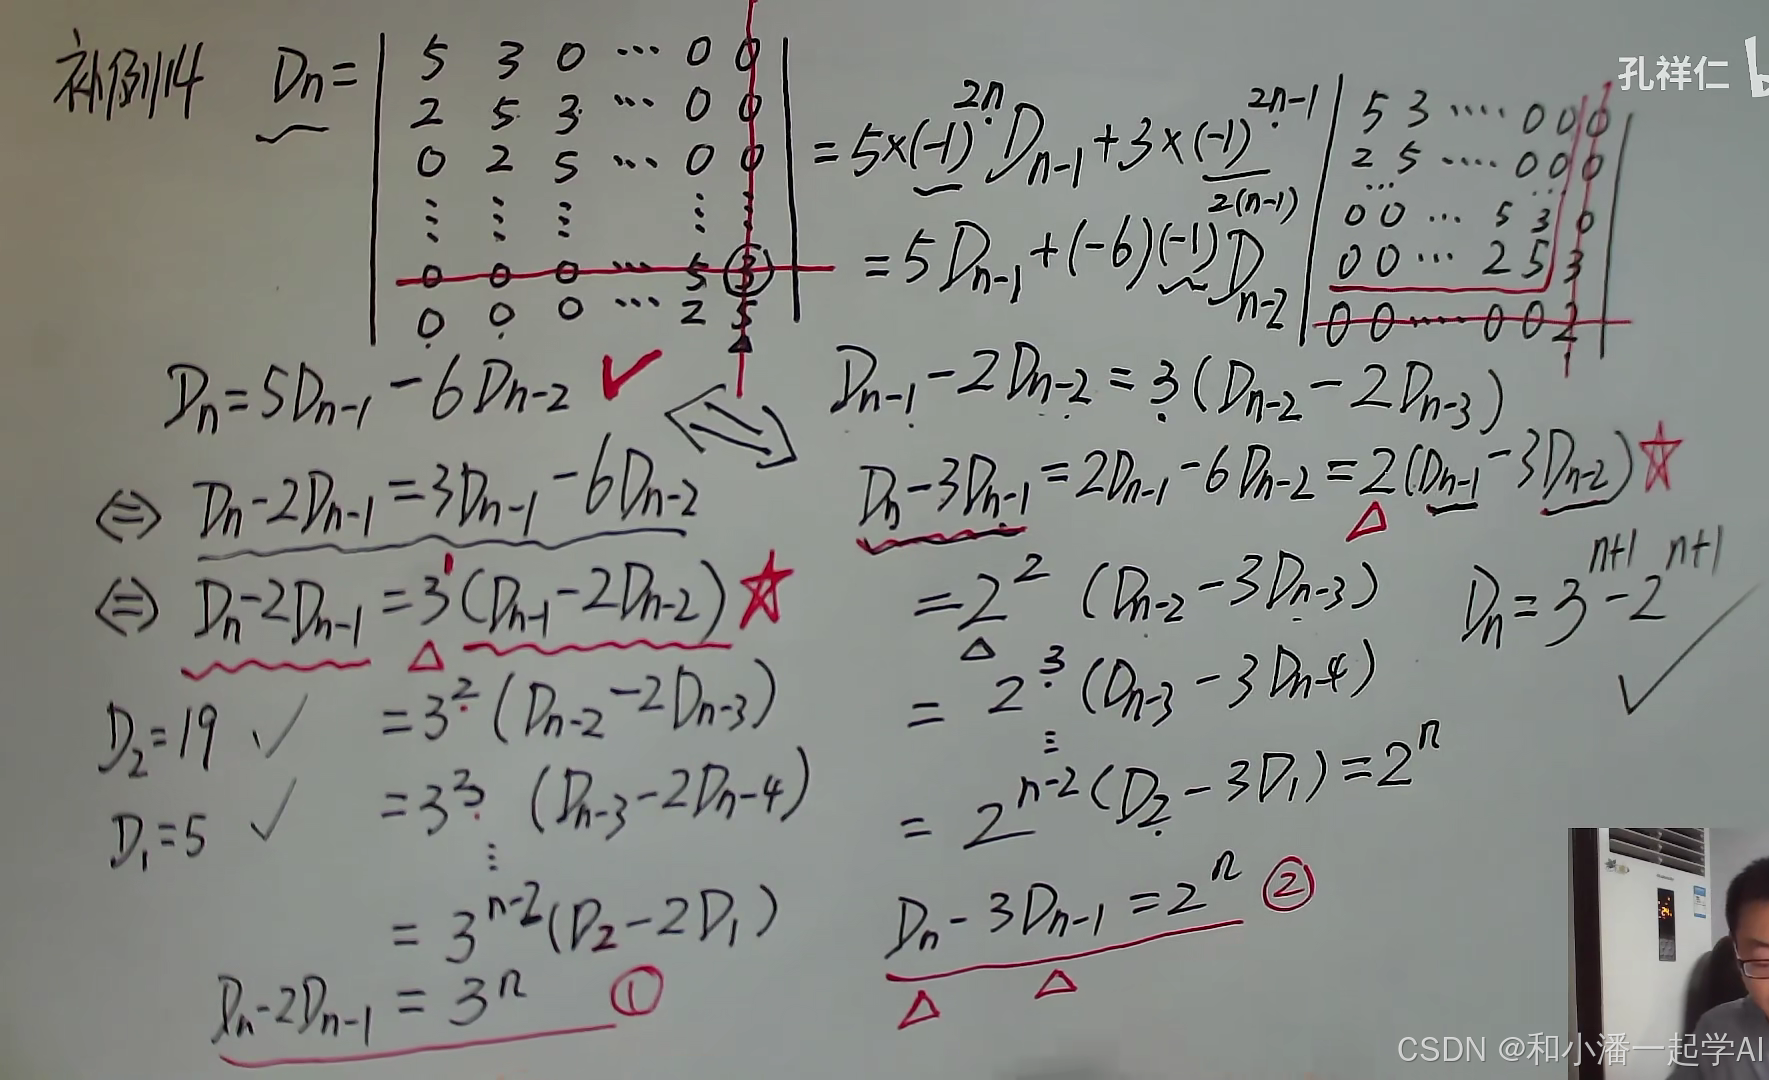 补例14 Dn= | 5 3 0 ⋯ 0 0 |
| 2 5 3 ⋯ 0 0 |
| 0 2 5 ⋯ 0 0 |
| ⋮ ⋮ ⋮ ⋮ ⋮ |
| 0 0 0 ⋯ 5 3 |
| 0 0 0 ⋯ 2 5 |
孔祥仁 b
=5×(-1)^{2n} D_{n-1}+3×(-1)^{2n-1} | 5 3 ⋯ 0 0 0 |
| 2 5 ⋯ 0 0 0 |
| ⋯ ⋯ |
| 0 0 ⋯ 5 3 0 |
| 0 0 ⋯ 2 5 3 |
| 0 0 ⋯ 0 0 2 |
=5D_{n-1}+(-6)(-1)^{2(n-1)} D_{n-2}
Dn=5D_{n-1}-6D_{n-2} ✓
⇔ Dn-2D_{n-1}=3D_{n-1}-6D_{n-2}
⇔ Dn-2D_{n-1}=3^1(D_{n-1}-2D_{n-2}) ☆
D_2=19 ✓ =3^2(D_{n-2}-2D_{n-3})
D_1=5 ✓ =3^3(D_{n-3}-2D_{n-4})
⋮
=3^{n-2}(D_2-2D_1)
Dn-2D_{n-1}=3^n ①
D_{n-1}-2D_{n-2}=3(D_{n-2}-2D_{n-3})
Dn-3D_{n-1}=2D_{n-1}-6D_{n-2}=2(D_{n-1}-3D_{n-2}) ☆
=2^2(D_{n-2}-3D_{n-3})
=2^3(D_{n-3}-3D_{n-4})
⋮
=2^{n-2}(D_2-3D_1)=2^n
Dn-3D_{n-1}=2^n ②
Dn=3^{n+1}-2^{n+1} ✓
CSDN @和小潘一起学AI